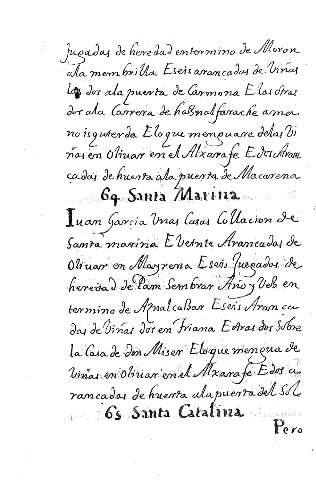 jugadas de heredad entermino de Moron
ala membrilla E seis arancadas de Viñas
las dos ala puerta de Carmona E las otras
dos ala Carrera de haSnalfarache amа
no isquierda Eloque menguare delas Vi
ñas en Olivar en el Alxarafe E dos Aran
cadas de huerta ala puerta de Macarena
64 Santa Marina
Iuan Garcia Unas Casas Collacion de
Santa marina E Veinte Arancadas de
Olivar en Mayrena E seis Jugadas de
heredad de Pam Sembrar Año y Vez en
termino de Aznalcaзar E seis Aranca
das de Viñas dos en Triana E otras dos Sobre
la Casa de don Miser Eloque mengua de
Viñas en Olivar en el Alxarafe E dos a
rancadas de huerta ala puerta del Sol
65 Santa Catalina
Pero